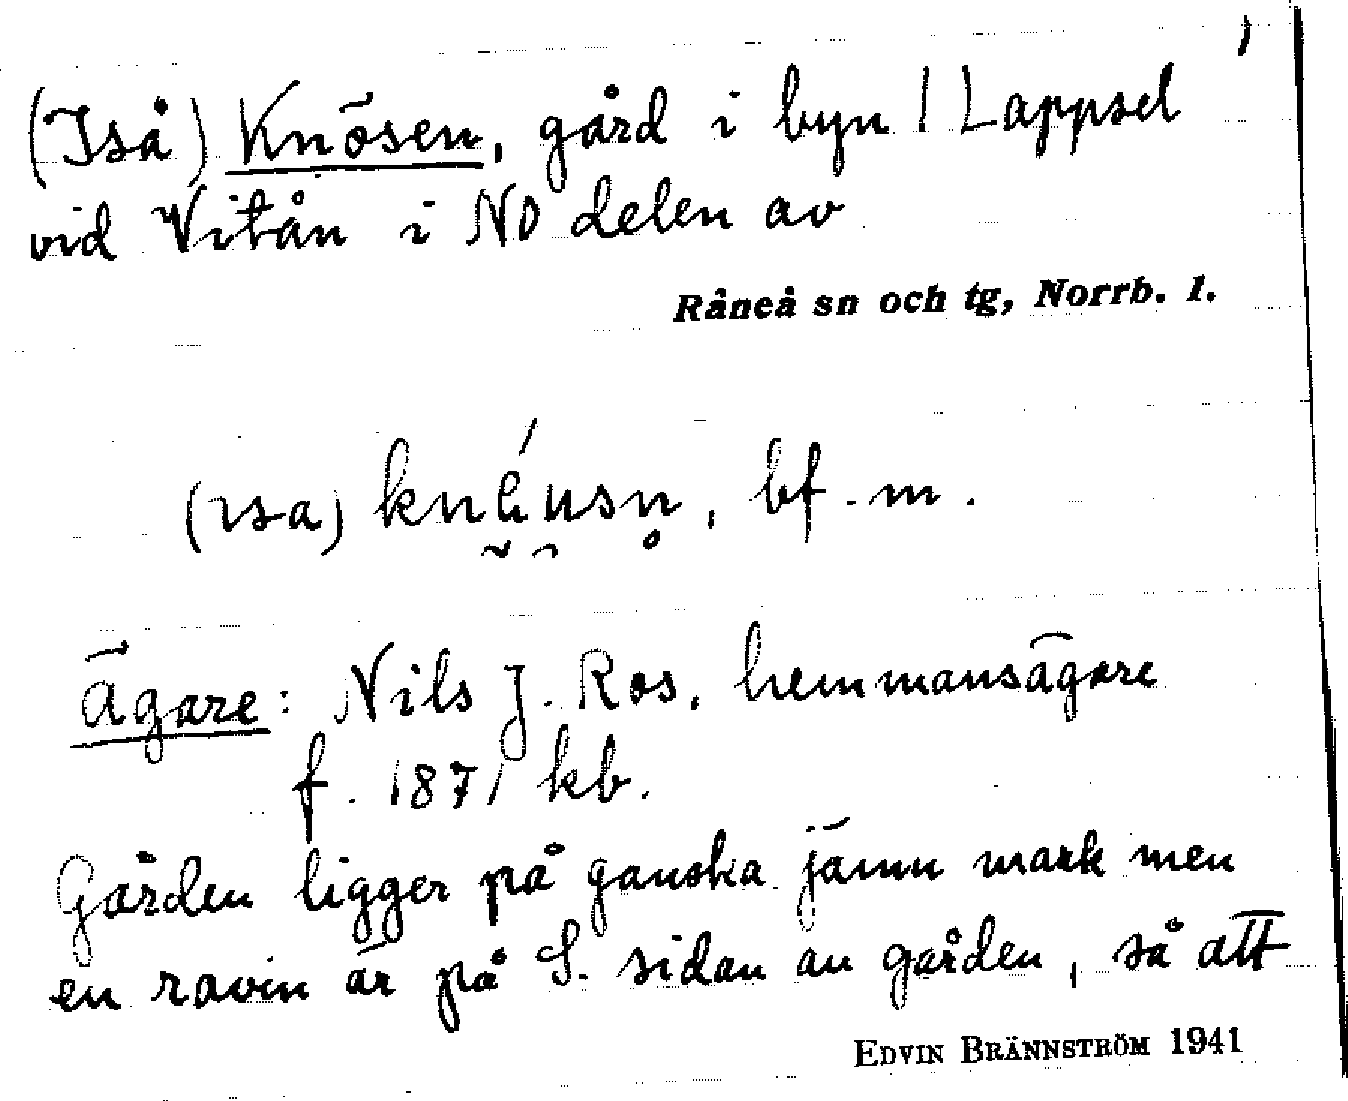 (Iså) Knösen, gård i byn ! Lappsel
vid Vitån i NO delen av
Råneå sn och tg, Norrb. l.
bf. m.
Ägare: Nils J. Ros, hemmansägare
f. 1871 kb.
Gården ligger på ganska jämn mark men
en ravin är på S. sidan au gården, så att
EDVIN BRÄNNSTRÖM 1941